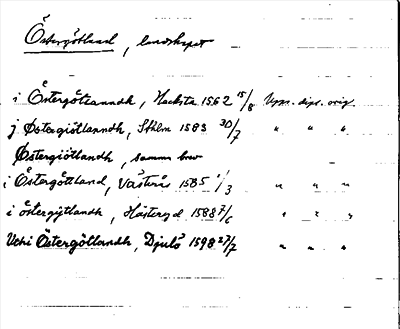 Östergötland, landskapet
i Östergötlanndh, Hacksta 1562 15/8 Upps. dipl. orig.
j Østergiötlanndh, Sthlm 1583 30/7 " " "
Østergiötlandh, samm brev
i Östergöttland, Västerås 1585 1/3 " " "
i östergijtlandh, 1588 7/6 " " "
Uthi Östergötlandh, Djulö 1598 27/7 " " "